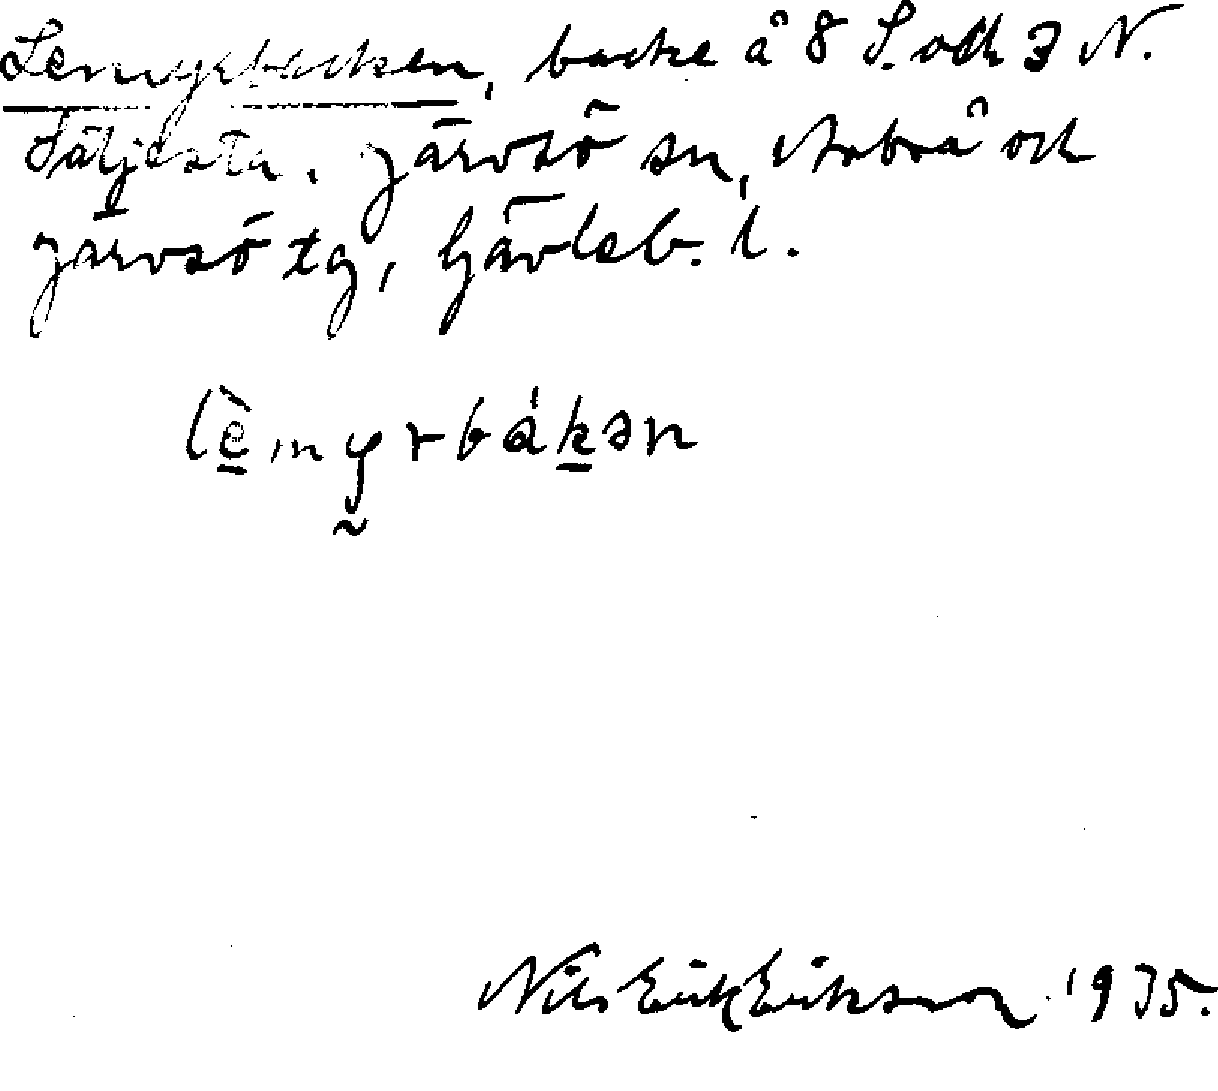 Lemyrbacken, backe å 8 S. och 3 N.
Säljesta. Järvsö sn, Arbrå och
Järvsö tg, Gävleb. l.
lèmyrbákən
Nils Erik Eriksson 1935.